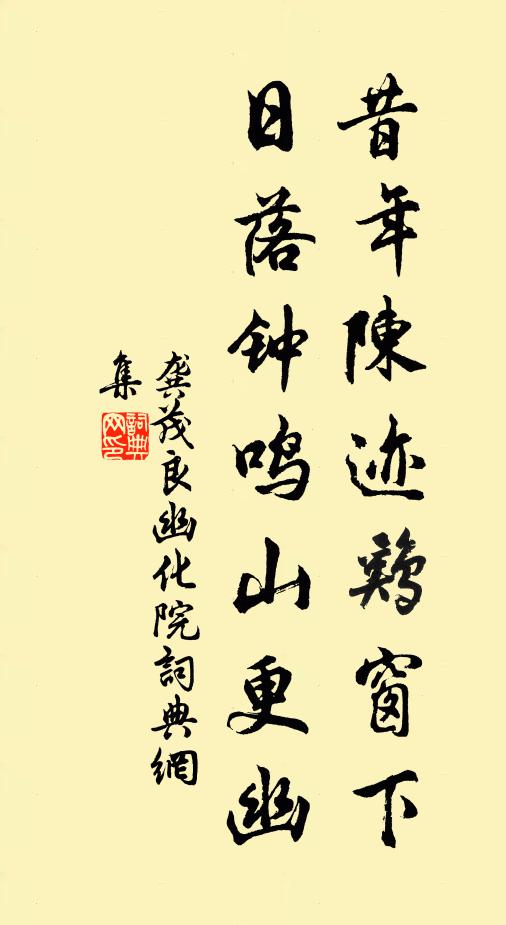 昔年陳迹鷄窗下
日落钟鸣山更幽
龚茂良幽化院詞典網
集
詞典
网印